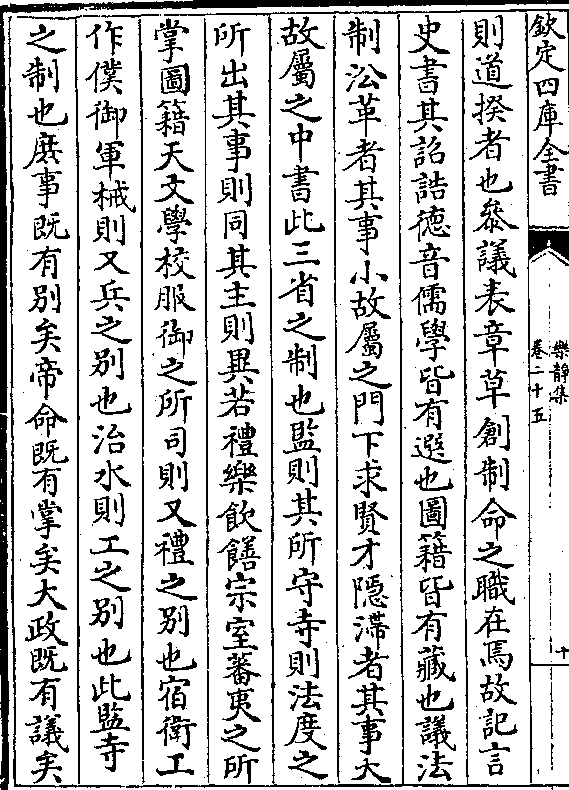 欽定四庫全書
樂靜集
卷二十五
十
則道揆者也叅議表章草創制命之職在焉故記言
史書其詔誥德音儒學皆有選也圖籍皆有藏也議法
制㳂革者其事小故屬之門下求賢才隠滯者其事大
故屬之中書此三省之制也監則其所守寺則法度之
所出其事則同其主則異若禮樂飲饍宗室蕃夷之所
掌圖籍天文學校服御之所司則又禮之别也宿衛工
作僕御軍械則又兵之别也治水則工之别也此監寺
之制也庶事既有别矣帝命既有掌矣大政既有議矣